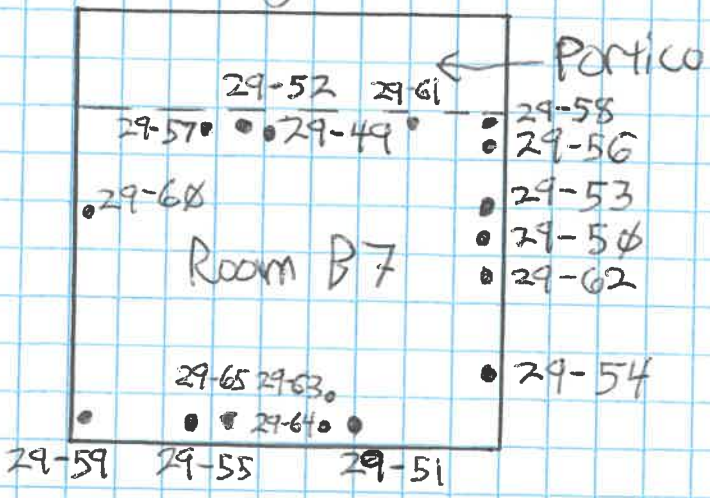 Portico
29-52 29-61
29-58
29-57 29-49
29-56
29-6Ø
29-53
29-5Ø
Room B7
29-62
29-65 29-63
29-54
29-64
29-59 29-55 29-51